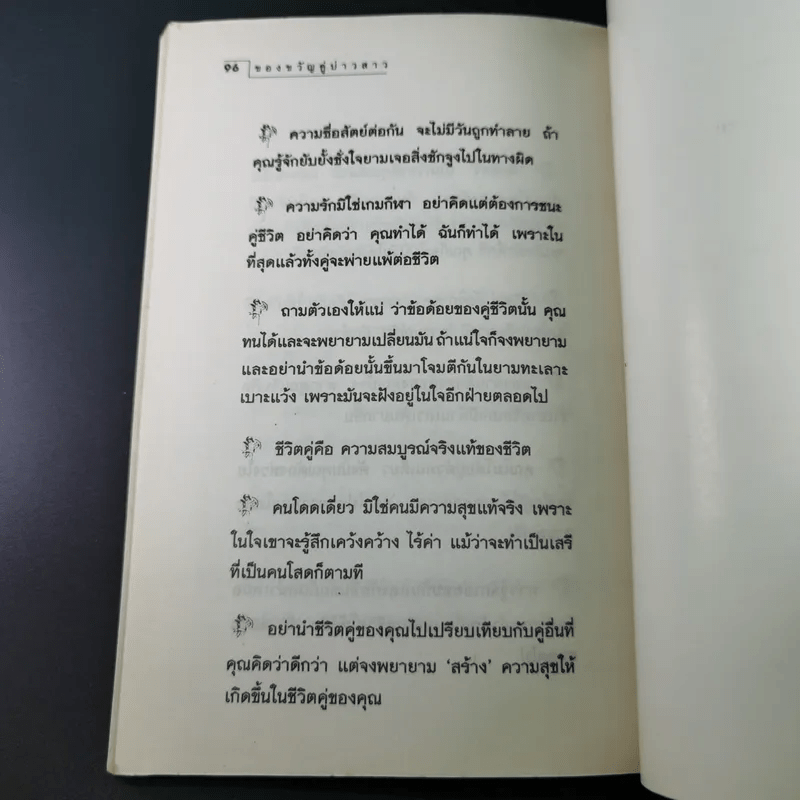 96 ของขวัญคู่บ่าวสาว
ความซื่อสัตย์ต่อกัน จะไม่มีวันถูกทำลาย ถ้า
คุณรู้จักยับยั้งชั่งใจยามเจอสิ่งชักจูงไปในทางผิด
ความรักมิใช่เกมกีฬา อย่าคิดแต่ต้องการชนะ
คู่ชีวิต อย่าคิดว่า คุณทำได้ ฉันก็ทำได้ เพราะใน
ที่สุดแล้วทั้งคู่จะพ่ายแพ้ต่อชีวิต
ถามตัวเองให้แน่ ว่าข้อด้อยของคู่ชีวิตนั้น คุณ
ทนได้และจะพยายามเปลี่ยนมัน ถ้าแน่ใจก็จงพยายาม
และอย่านำข้อด้อยนั้นขึ้นมาโจมตีกันในยามทะเลาะ
เบาะแว้ง เพราะมันจะฝังอยู่ในใจอีกฝ่ายตลอดไป
ชีวิตคู่คือ ความสมบูรณ์จริงแท้ของชีวิต
คนโดดเดี่ยว มิใช่คนมีความสุขแท้จริง เพราะ
ในใจเขาจะรู้สึกเคว้งคว้าง ไร้ค่า แม้ว่าจะทำเป็นเสรี
ที่เป็นคนโสดก็ตามที
อย่านำชีวิตคู่ของคุณไปเปรียบเทียบกับคู่อื่นที่
คุณคิดว่าดีกว่า แต่จงพยายาม ‘สร้าง’ ความสุขให้
เกิดขึ้นในชีวิตคู่ของคุณ